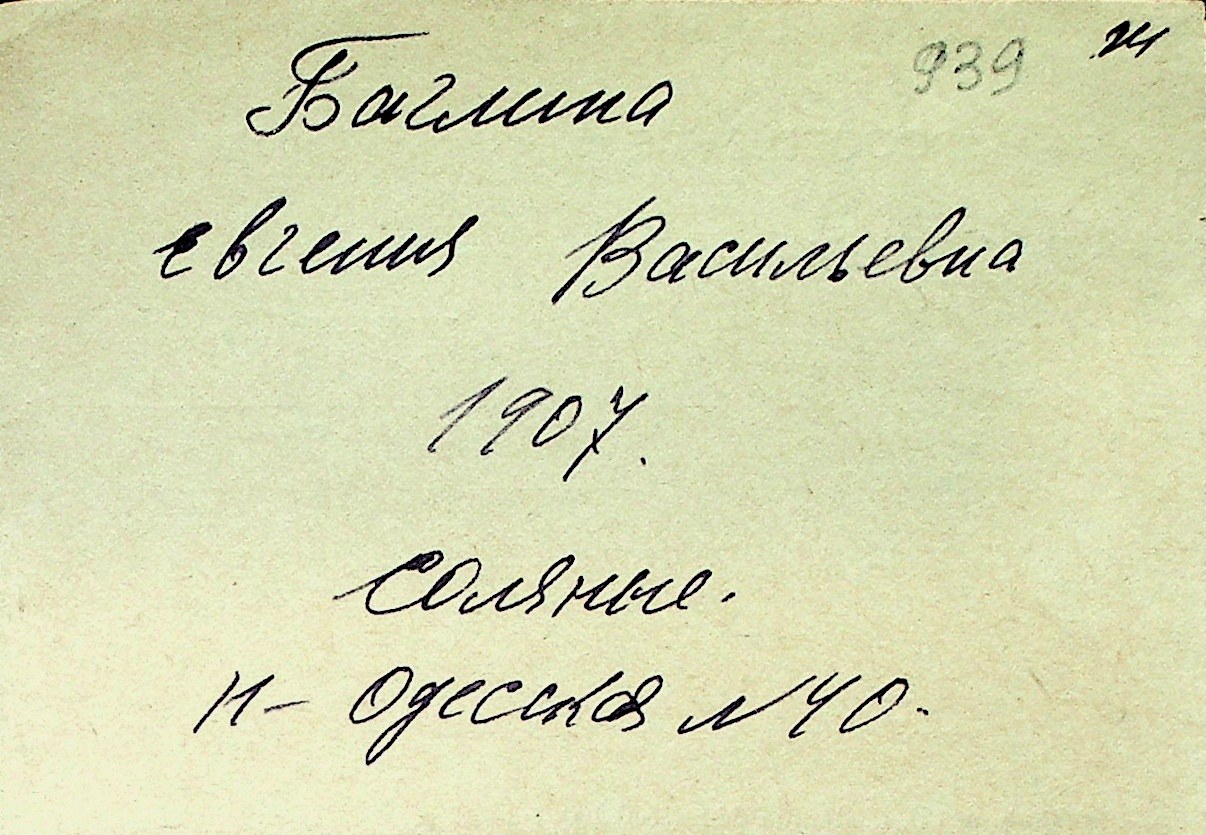 939 ж
Баглина
евгения Васильевна
1907.
Соляные.
Н- Одесская N 40.